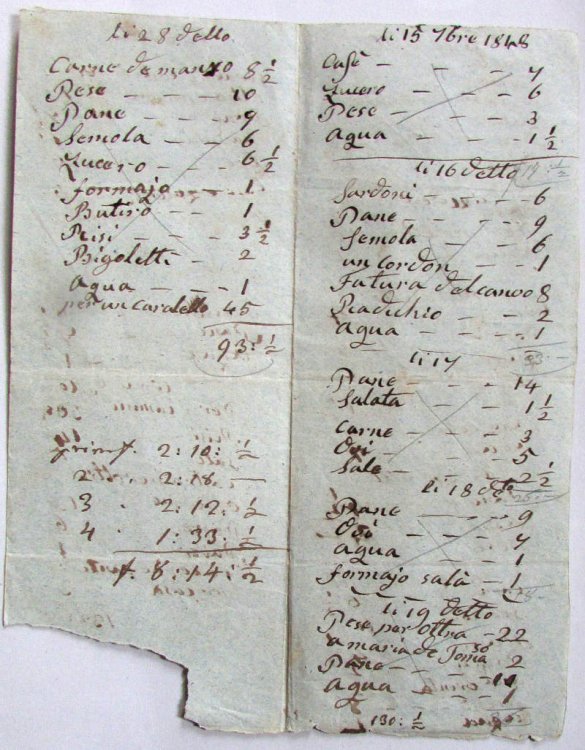 li 28 detto.
Carne de manzo 8 1/2
Pese - - - 10
Pane - - - 9
Semola - - 6
Zucero - - 6 1/2
formajo - - 1
Butiro - - 1
Risi - - 3 1/2
Bigoletti - 2
aqua - - 1
per un caratello 45
93:1/2
2:10:1/2
2 2:18:—
3 2:12:1/2
4 1:33:1/2
f. 8:14:1/2
li 15 7bre 1848
Cafè - - - 7
Zucero - - 6
Pese - - - 3
aqua - - - 1 1/2
li 16 detto
Sardoni - - - 6
Pane - - - 9
Semola - - 6
un cordon - - 1
Fatura del canvo 8
Radichio - - 2
aqua - - - 1
33
li 17
Pane - - - 14
Salata - - 1 1/2
carne - - - 3
Ovi - - - 5
Sale - - - 2 1/2
li 18 deto
Pane - - - 9
Ovi - - - 7
aqua - - 1
formajo salà - 1
li 19 detto
Pese per oltra - 22
a maria de Tomaso
Pane - - - 2
aqua - - - 1
130:1/2